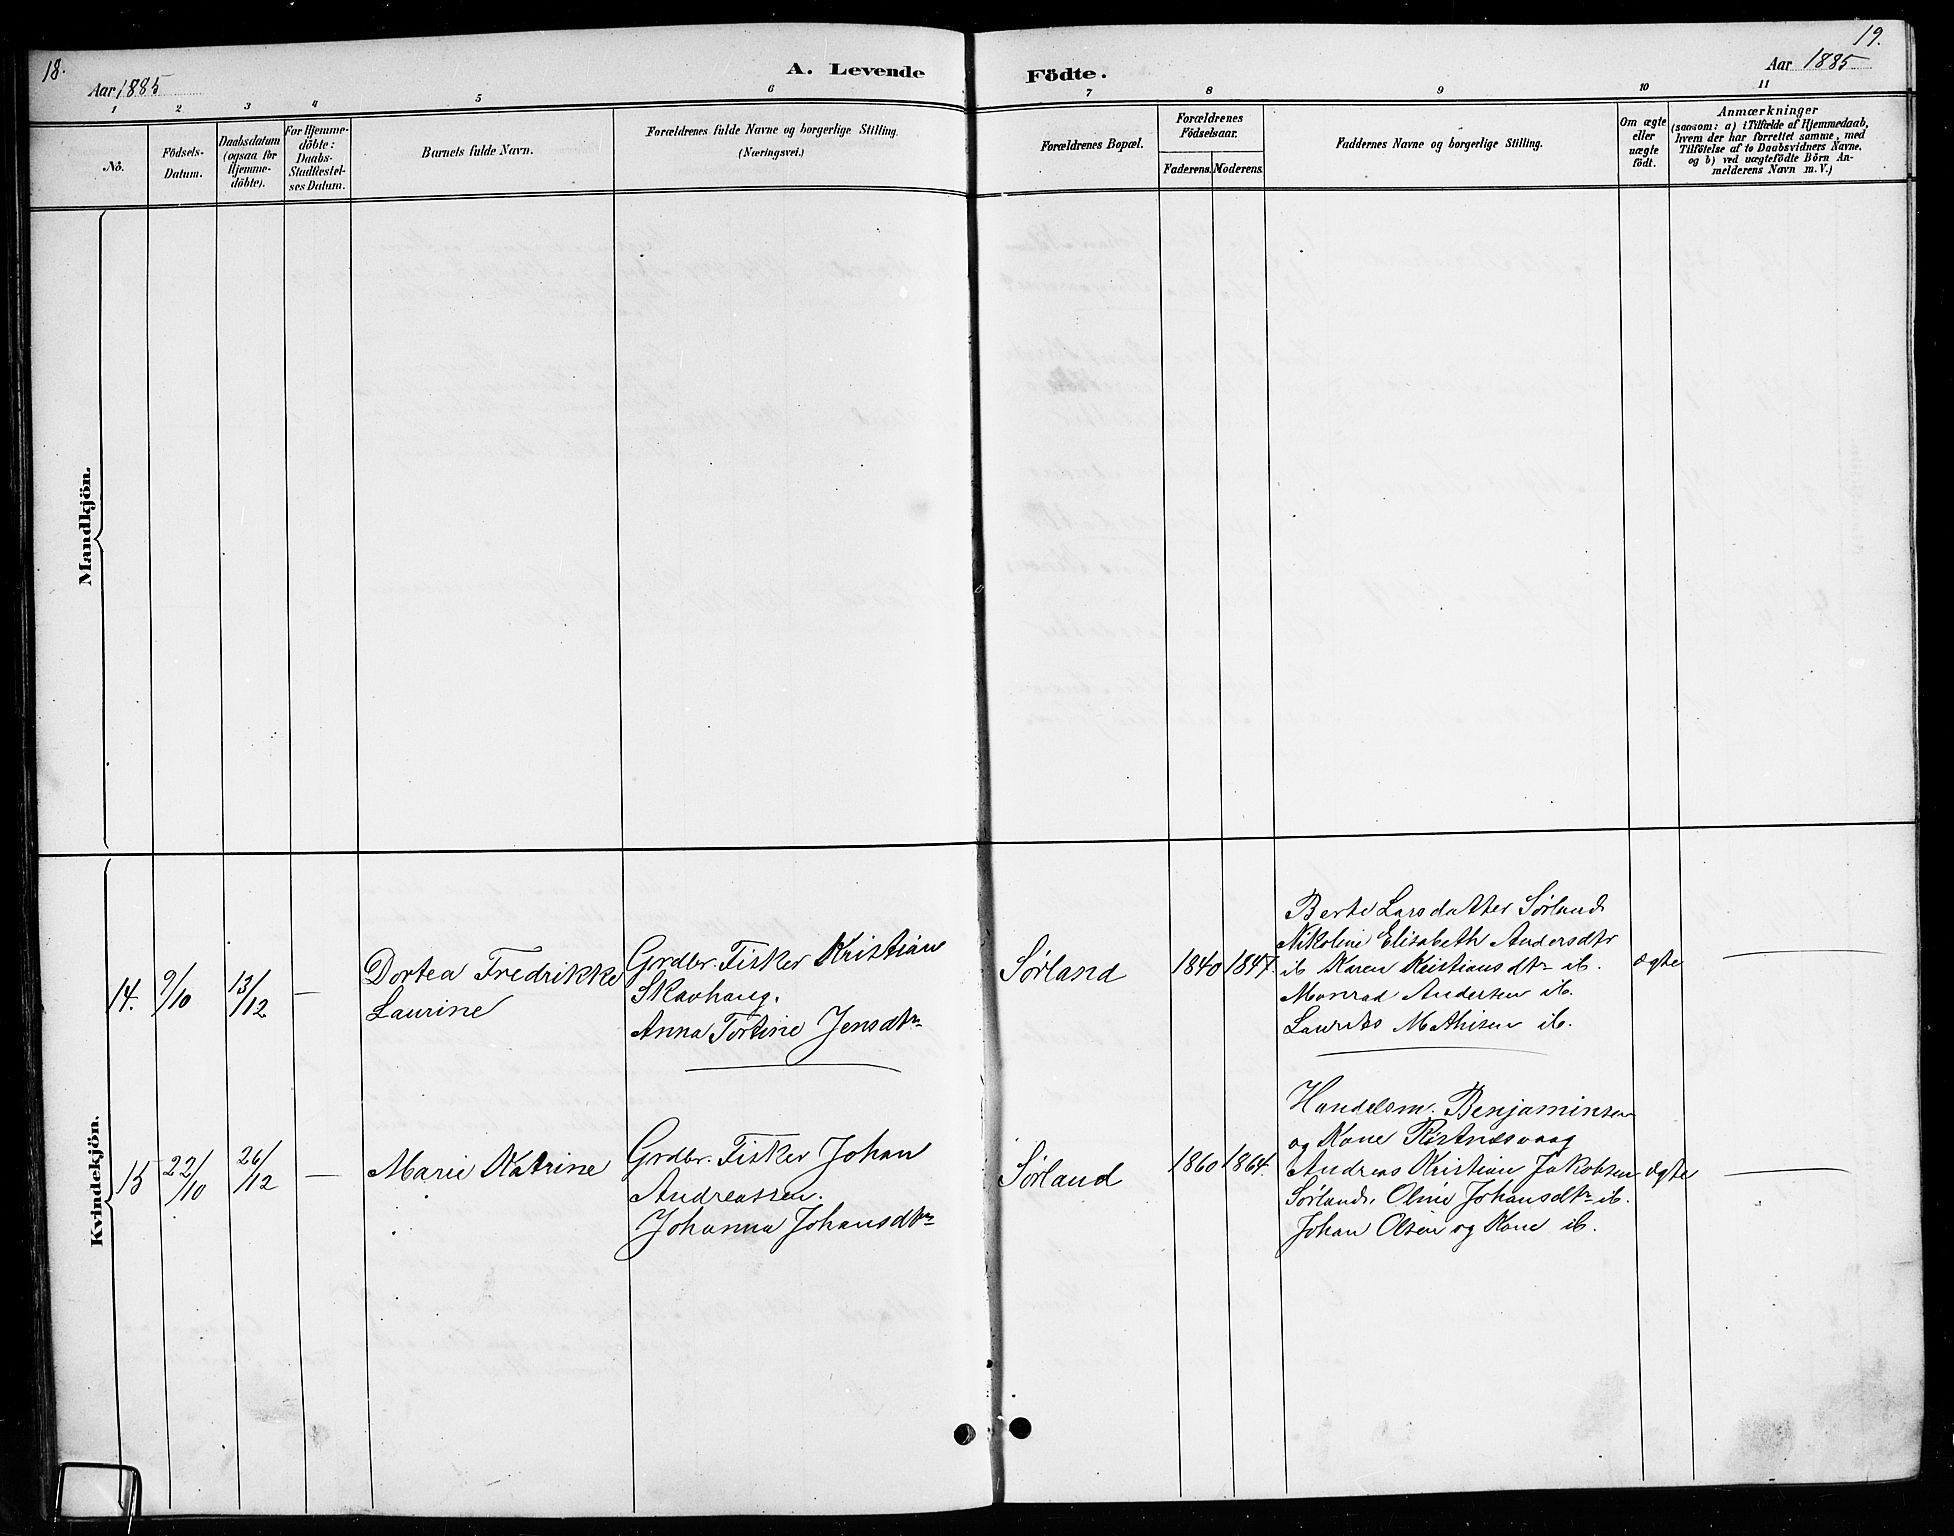 18.
Aar 1885
A. Levende
Födte.
Aar 1885
19.
1 2 3 4 5 6 7 8 9 10 11
No.
Födsels-
Datum.
Daabsdatum
(ogsaa for
Hjemme-
döbte).
For Hjemme-
döbte:
Daabs-
Stadfæstel-
ses Datum.
Barnets fulde Navn.
Forældrenes fulde Navne og borgerlige Stilling.
(Næringsvei.)
Forældrenes Bopæl.
Forældrenes
Födselsaar.
Faderens. Moderens.
Faddernes Navne og borgerlige Stilling.
Om ægte
eller
uægte
födt.
Anmærkninger
(saasom: a) i Tilfælde af Hjemmedaab,
hvem der har forrettet samme, med
Tilföielse af to Daabsvidners Navne.
og b) ved uægtefödte Börn An-
melderens Navn m. V.)
Mandkjön.
Kvindekjön.
14. 9/10 13/12 —
Dortea Fredrikke
Laurine
Grdbr. Fisker Kristian
Skavhaug.
Anna Tortine Jensdtr
Sørland
1840 1847.
Berte Larsdatter Sørland
Nikoline Elisabeth Andersdtr
ib Karen Kristiansdtr ib.
Monrad Andersen ib.
Laurits Mathisen ib.
ægte
15 22/10 26/12 —
Marie Katrine
Grdbr. Fisker Johan
Andreassen.
Johanna Johansdtr
Sørland
1860 1864.
Handelsm. Benjaminsen
og Kone Røstnesvaag
Andreas Kristian Jakobsen
Sørland, Oline Johansdtr ib.
Johan Olsen og Kone ib.
ægte